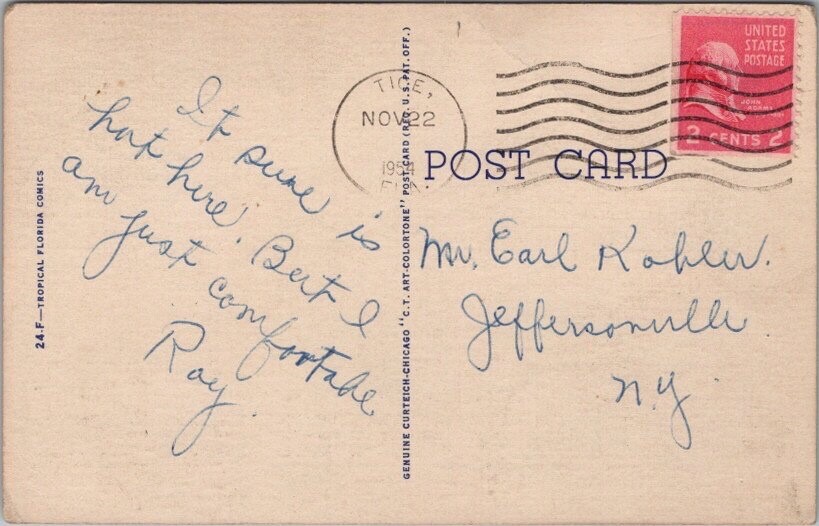 It sure is
hot here. Bert I
am just comfortable
Ray
24-F—TROPICAL FLORIDA COMICS
GENUINE CURTEICH-CHICAGO "C.T. ART-COLORTONE" POST CARD (REG. U.S. PAT. OFF.)
TICE,
NOV 22
1954
FLA.
UNITED
STATES
POSTAGE
JOHN
ADAMS
2 CENTS 2
POST CARD
Mr. Earl Kohler.
Jeffersonville
N.Y.